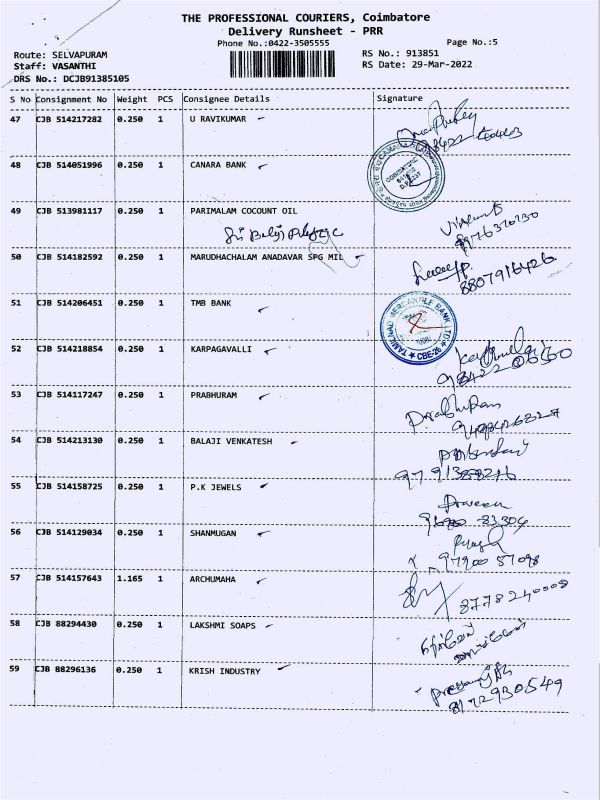 THE PROFESSIONAL COURIERS, Coimbatore
Delivery Runsheet - PRR
Phone No.:0422-3505555 Page No.:5
Route: SELVAPURAM RS No.: 913851
Staff: VASANTHI RS Date: 29-Mar-2022
DRS No.: DCJB91385105
S No Consignment No Weight PCS Consignee Details Signature
47 CJB 514217282 0.250 1 U RAVIKUMAR
48 CJB 514051996 0.250 1 CANARA BANK
COIMBATORE
49 CJB 513981117 0.250 1 PARIMALAM COCOUNT OIL
Sri Balaji
9976370730
50 CJB 514182592 0.250 1 MARUDHACHALAM ANADAVAR SPG MIL
8807916426
51 CJB 514206451 0.250 1 TMB BANK
TAMILNAD MERCANTILE BANK LTD
CBE-26
52 CJB 514218854 0.250 1 KARPAGAVALLI
53 CJB 514117247 0.250 1 PRABHURAM
Prabhuram
54 CJB 514213130 0.250 1 BALAJI VENKATESH
55 CJB 514158725 0.250 1 P.K JEWELS
Praveen
56 CJB 514129034 0.250 1 SHANMUGAN
97900 57098
57 CJB 514157643 1.165 1 ARCHUMAHA
8778240008
58 CJB 88294430 0.250 1 LAKSHMI SOAPS
59 CJB 88296136 0.250 1 KRISH INDUSTRY